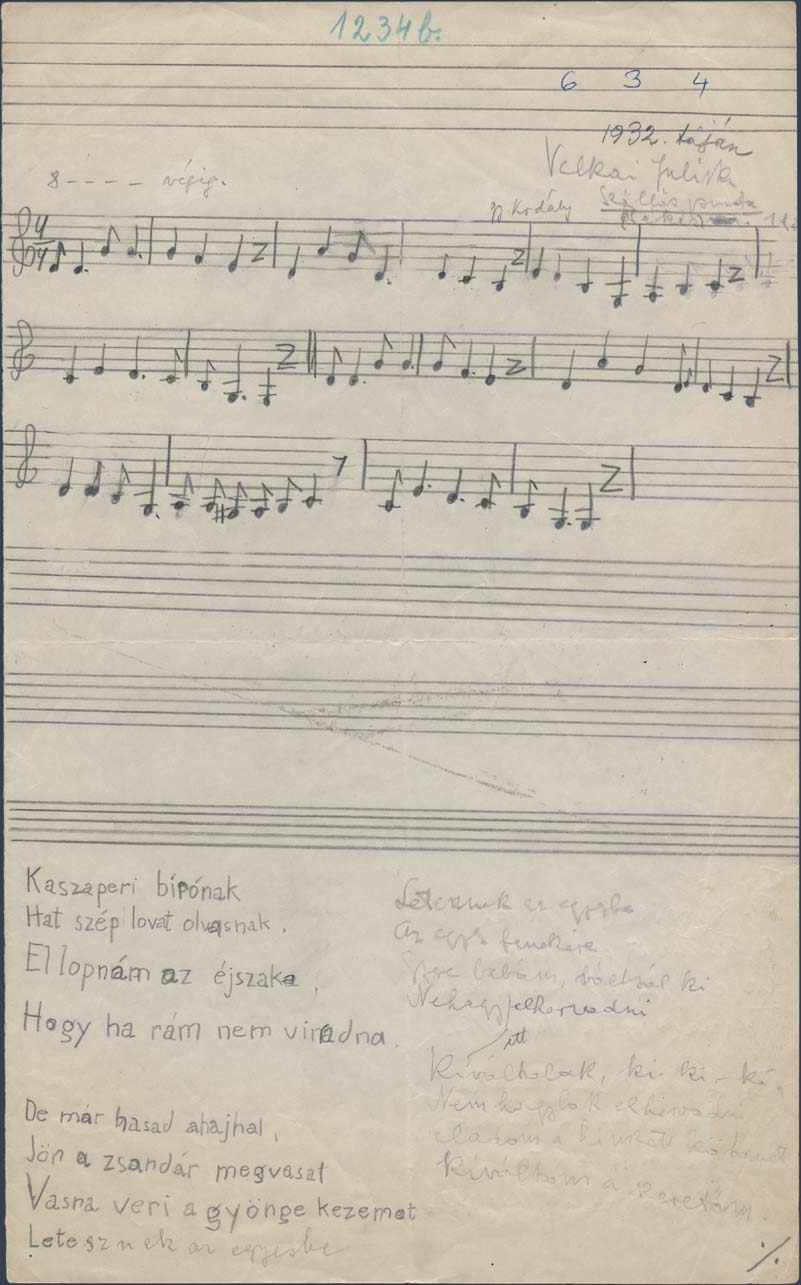 1234b.
6 3 4
1932. táján
Velkai Julisk
8 - - - - végig.
gy Kodály
Szöllős puszta
4/4
Kaszaperi bírónak
Hat szép lovat olvasnak.
El lopnám az éjszaka,
Hogy ha rám nem viradna.
De már hasad ahajnal,
Jön a zsandár megvasal
Vasra veri a gyönge kezemet
Letesznek az egyesbe
Letesznek az egyesbe
Az egyes fenekére
Gyere babám, válcsál ki
Ne hagyj elhervadni
itt
Kiváltalak, ki-ki-ki,
Nem hagylak elhervadni
Eladom a
Kiváltom a szeretőm.
./.